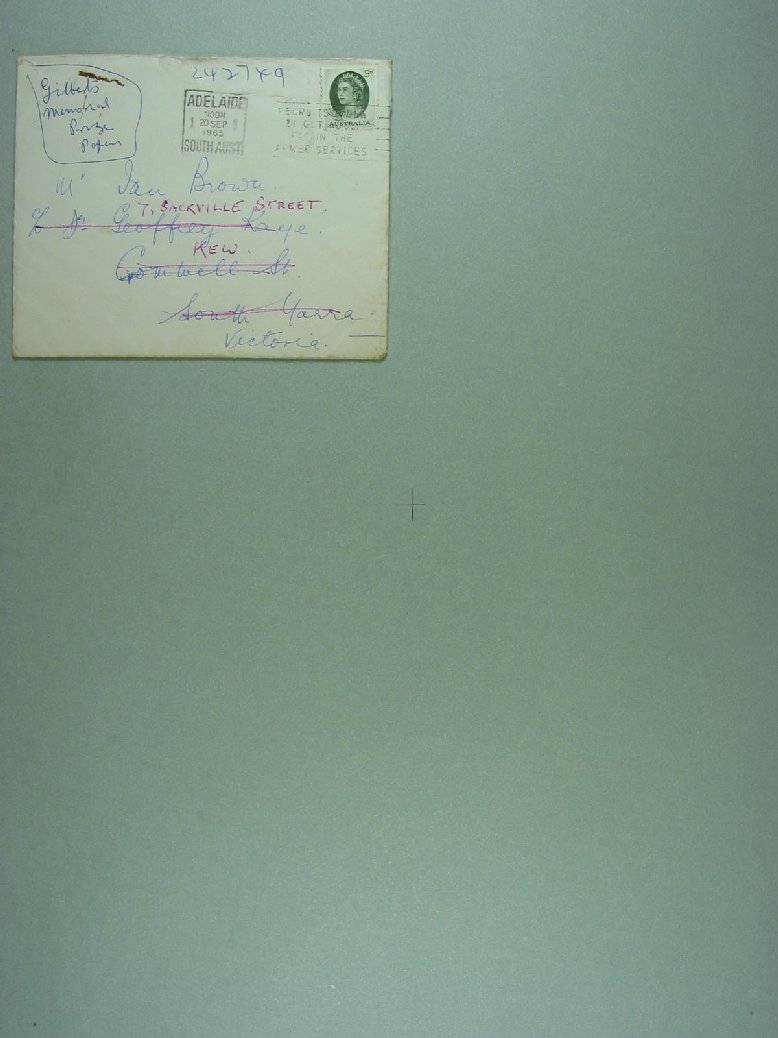 242749
Gilbert's
Memorial
Prize
Papers
ADELAIDE
NOON
1 20 SEP 1
1965
SOUTH AUST
IN THE
ARMED SERVICES
5D
AUSTRALIA
Mr Ian Brown.
7, SACKVILLE STREET,
C/- Dr Geoffrey Kaye.
KEW.
St.
South Yarra.
Victoria.